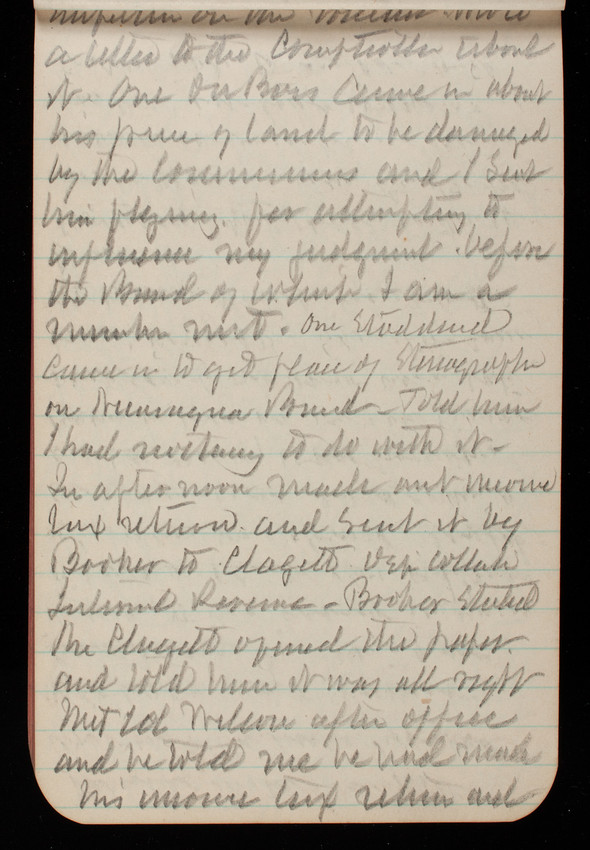 a letter to the Comptroller about
it. One Du Bois came in about
his piece of land to be damaged
by the and I sent
him flying for attempting to
influence my judgment before
the Board of which I am a
member next. One Stoddard
came in to get place of Stenographer
on Nicaragua Board - Told him
I had nothing to do with it -
In afternoon made out income
tax return and sent it by
Booker to Clagett Dep Collector
Internal Revenue - Booker stated
the Clagett opened the paper
and told him it was all right
Met Wilson after office
and he told me he had made
his income tax return and